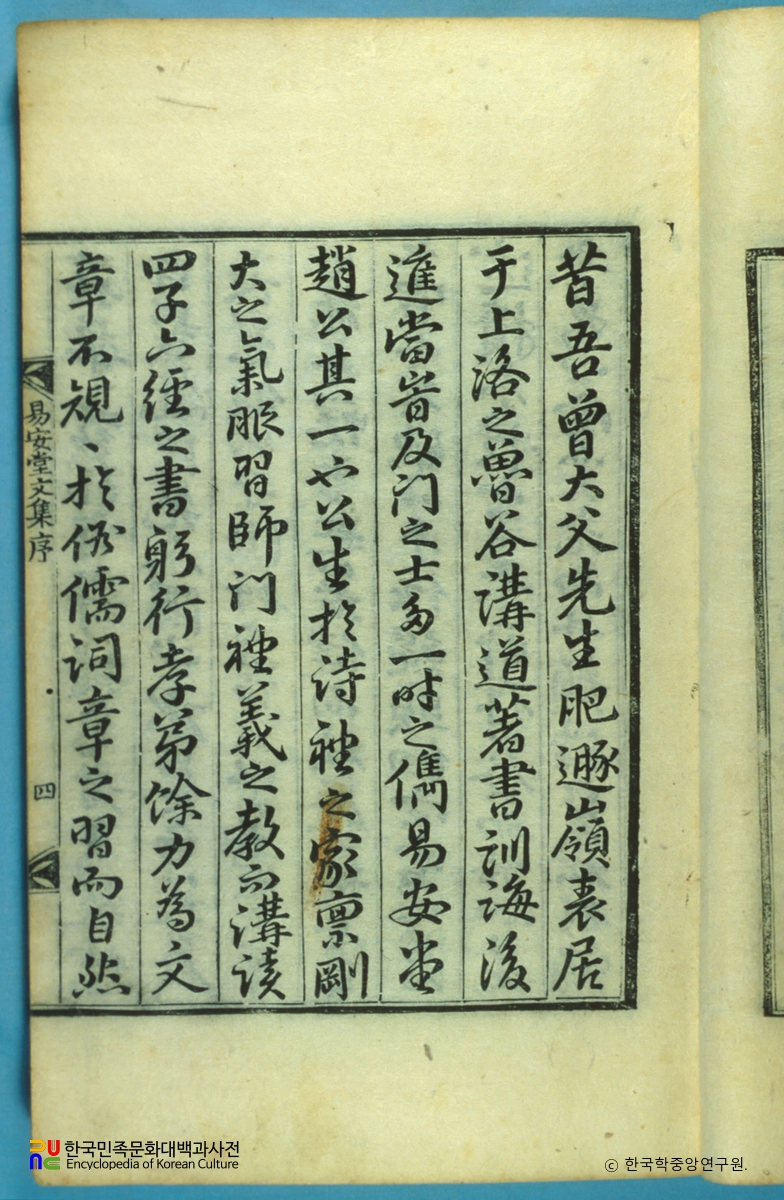 昔吾曾大父先生肥遯嶺表居
于上洛之魯谷講道著書訓誨後
進當時及門之士多一時之儁易安堂
趙公其一也公生於詩禮之家禀剛
大之氣服習師門禮義之教而講读
四子六經之書躬行孝弟馀力為文
章不規〻於俗儒词章之習而自然
易安堂文集序
四
한국민족문화대백과사전
Encyclopedia of Korean Culture
ⓒ 한국학중앙연구원.